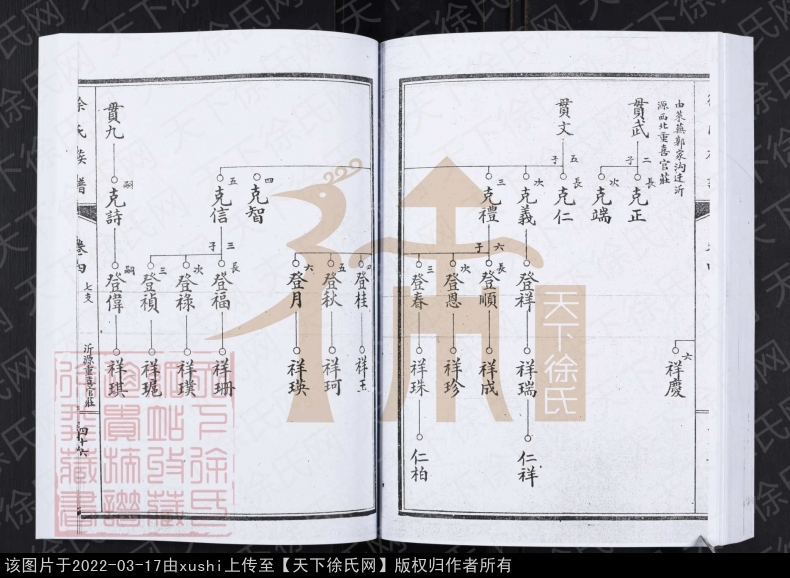 由萊蕪鄭家沟迁沂
源西北重喜官莊
貫武
二子
長 克正
次 克端
貫文
五子
長 克仁
次 克義
三 克禮
四 克智
五 克信
登祥
六子
長 登順
次 登恩
三 登春
登桂
五 登秋
六 登月
三子
長 登福
次 登祿
三 登禎
六 祥慶
祥瑞
祥成
祥珍
祥珠
祥玉
祥珂
祥瑛
祥珊
祥璞
祥琨
仁祥
仁柏
貫九
嗣 克詩
嗣 登偉
祥琪
徐氏族譜
卷四
七支
沂源重喜官莊
四十六
天下徐氏
天下徐氏网
该图片于2022-03-17由xushi上传至【天下徐氏网】版权归作者所有